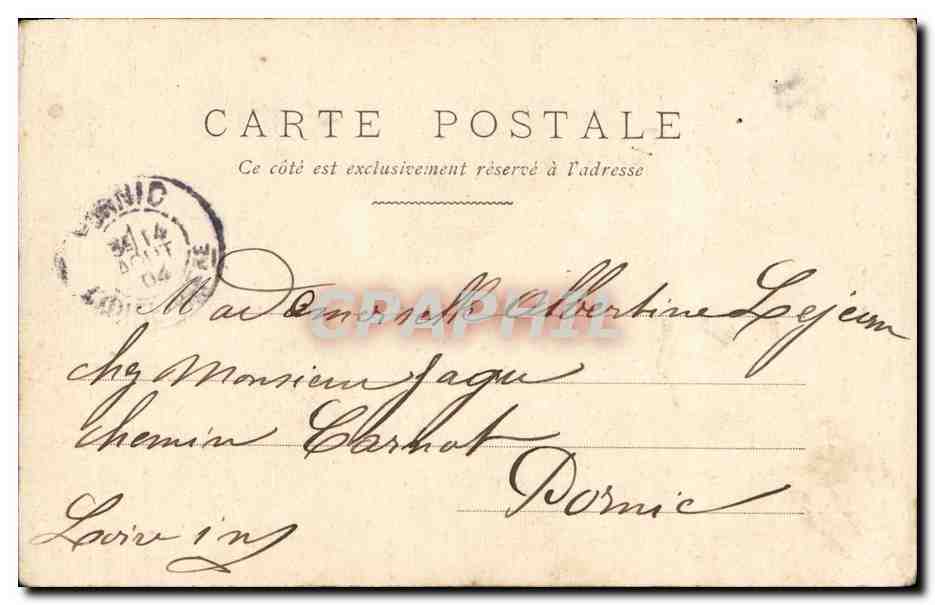 CARTE POSTALE
Ce côté est exclusivement réservé à l'adresse
PORNIC
14
AOUT
04
Mademoiselle Albertine Lejeun
chez Monsieur Jagu
chemin Carnot
Pornic
Loire inf
GRAPHIL